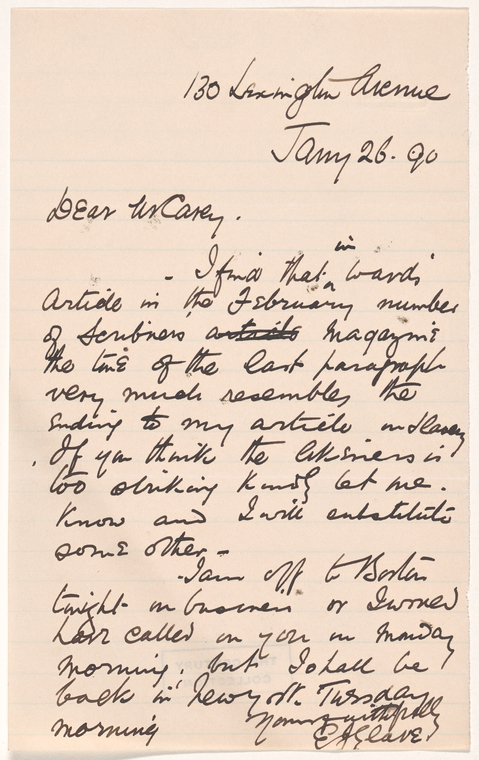 130 Lexington Avenue
Jany 26. 90
Dear Mr Carey.
- I find that in Wards'
Article in the February number
of Scribners' article Magazine
the tone of the last paragraph
very much resembles the
ending to my article on Slavery
. If you think the likeness is
too striking Kindly let me.
Know and I will substitute
some other. -
- I am off to Boston
tonight on business or I would
have called on you on Monday
morning, but I shall be
back in New York Tuesday
morning
Yours faithfully
E J Glave